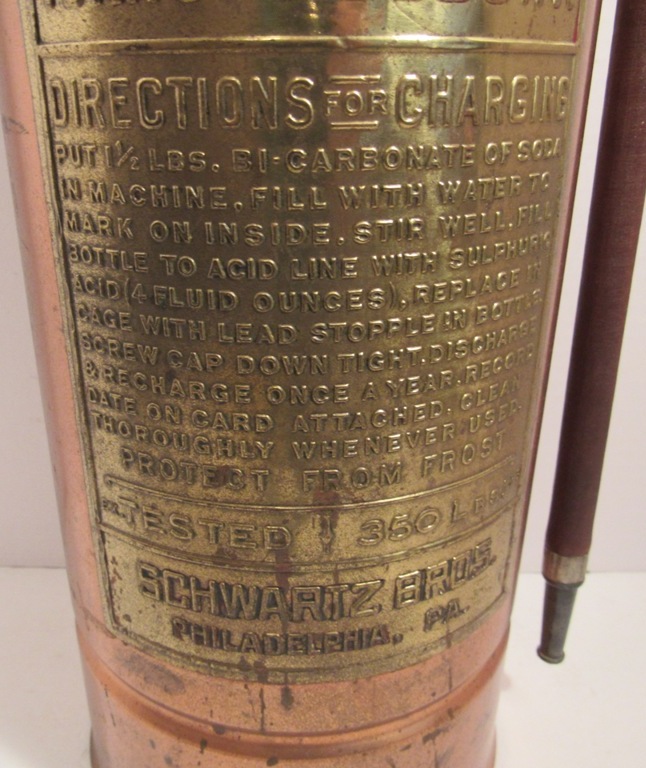 DIRECTIONS FOR CHARGING
PUT 1½ LBS. BI-CARBONATE OF SODA
IN MACHINE, FILL WITH WATER TO
MARK ON INSIDE. STIR WELL, FILL
BOTTLE TO ACID LINE WITH SULPHURIC
ACID (4 FLUID OUNCES), REPLACE IN
CAGE WITH LEAD STOPPLE IN BOTTLE.
SCREW CAP DOWN TIGHT. DISCHARGE
& RECHARGE ONCE A YEAR. RECORD
DATE ON CARD ATTACHED. CLEAN
THOROUGHLY WHENEVER USED.
PROTECT FROM FROST
TESTED 350 LBS.
SCHWARTZ BROS.
PHILADELPHIA, PA.